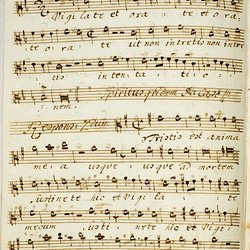 Vigilate et ora te et ora
te ora te ut non intretis non intre
tis in tenta ti o
nem. Spiritus quidem
Respons: 2dum
Tristis est anima
me a usque usque ad mortem
sustinete hic et vigila te
mecum susti nete hic et vigi